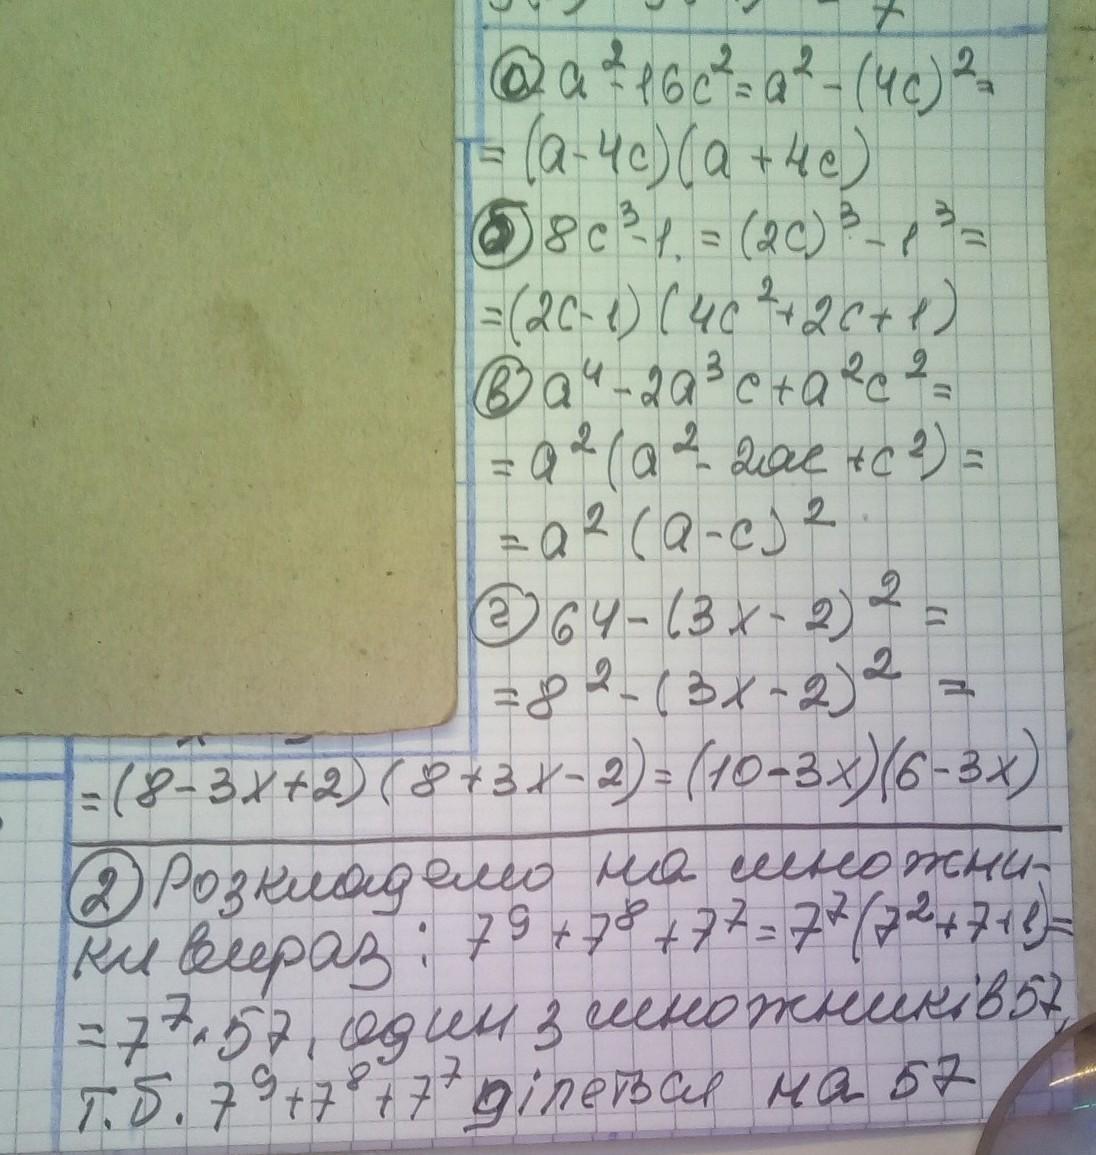 а) a² - 16c² = a² - (4c)² =
= (a - 4c)(a + 4c)
б) 8c³ - 1. = (2c)³ - 1³ =
= (2c - 1)(4c² + 2c + 1)
в) a⁴ - 2a³c + a²c² =
= a²(a² - 2ac + c²) =
= a²(a - c)²
г) 64 - (3x - 2)² =
= 8² - (3x - 2)² =
= (8 - 3x + 2)(8 + 3x - 2) = (10 - 3x)(6 - 3x)
2) Розкладемо на множни-
ки вираз: 7⁹ + 7⁸ + 7⁷ = 7⁷(7² + 7 + 1) =
= 7⁷ · 57, один з множників 57,
т.б. 7⁹ + 7⁸ + 7⁷ ділеться на 57